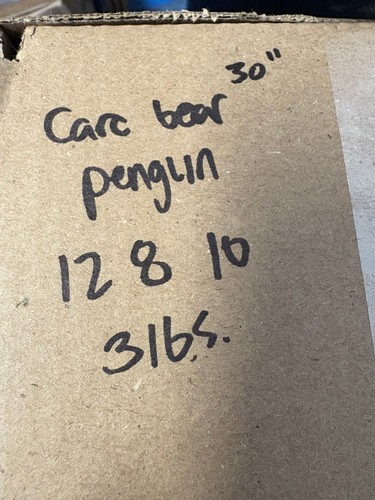 Care bear 30"
penguin
12 8 10
3lbs.